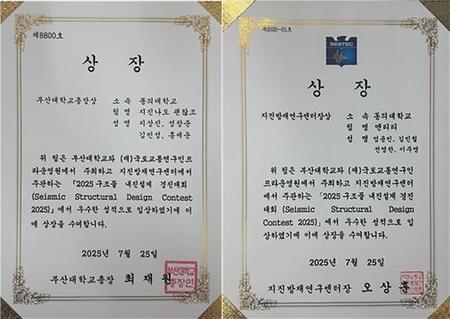 제8800호
상 장
부산대학교총장상
소 속 동의대학교
팀 명 지진나도 괜찮조
성 명 지상진, 성창준
김민성, 홍세운
위 팀은 부산대학교와 (재)국토교통연구인
프라운영원에서 주최하고 지진방재연구센터에서
주관하는 「2025 구조물 내진설계 경진대회
(Seismic Structural Design Contest
2025)」에서 우수한 성적으로 입상하였기에 이
에 상장을 수여합니다.
2025년 7월 25일
부산대학교총장 최재원
부산대학교
총장인
제2025-01호
SESTEC
상 장
지진방재연구센터장상
소 속 동의대학교
팀 명 엔리리
성 명 엄준민, 김민혁
전영찬, 이주영
위 팀은 부산대학교와 (재)국토교통연구인
프라운영원에서 주최하고 지진방재연구센터
에서 주관하는 「2025 구조물 내진설계 경진
대회(Seismic Structural Design
Contest 2025)」에서 우수한 성적으로 입
상하였기에 이에 상장을 수여합니다.
2025년 7월 25일
지진방재연구센터장 오상훈